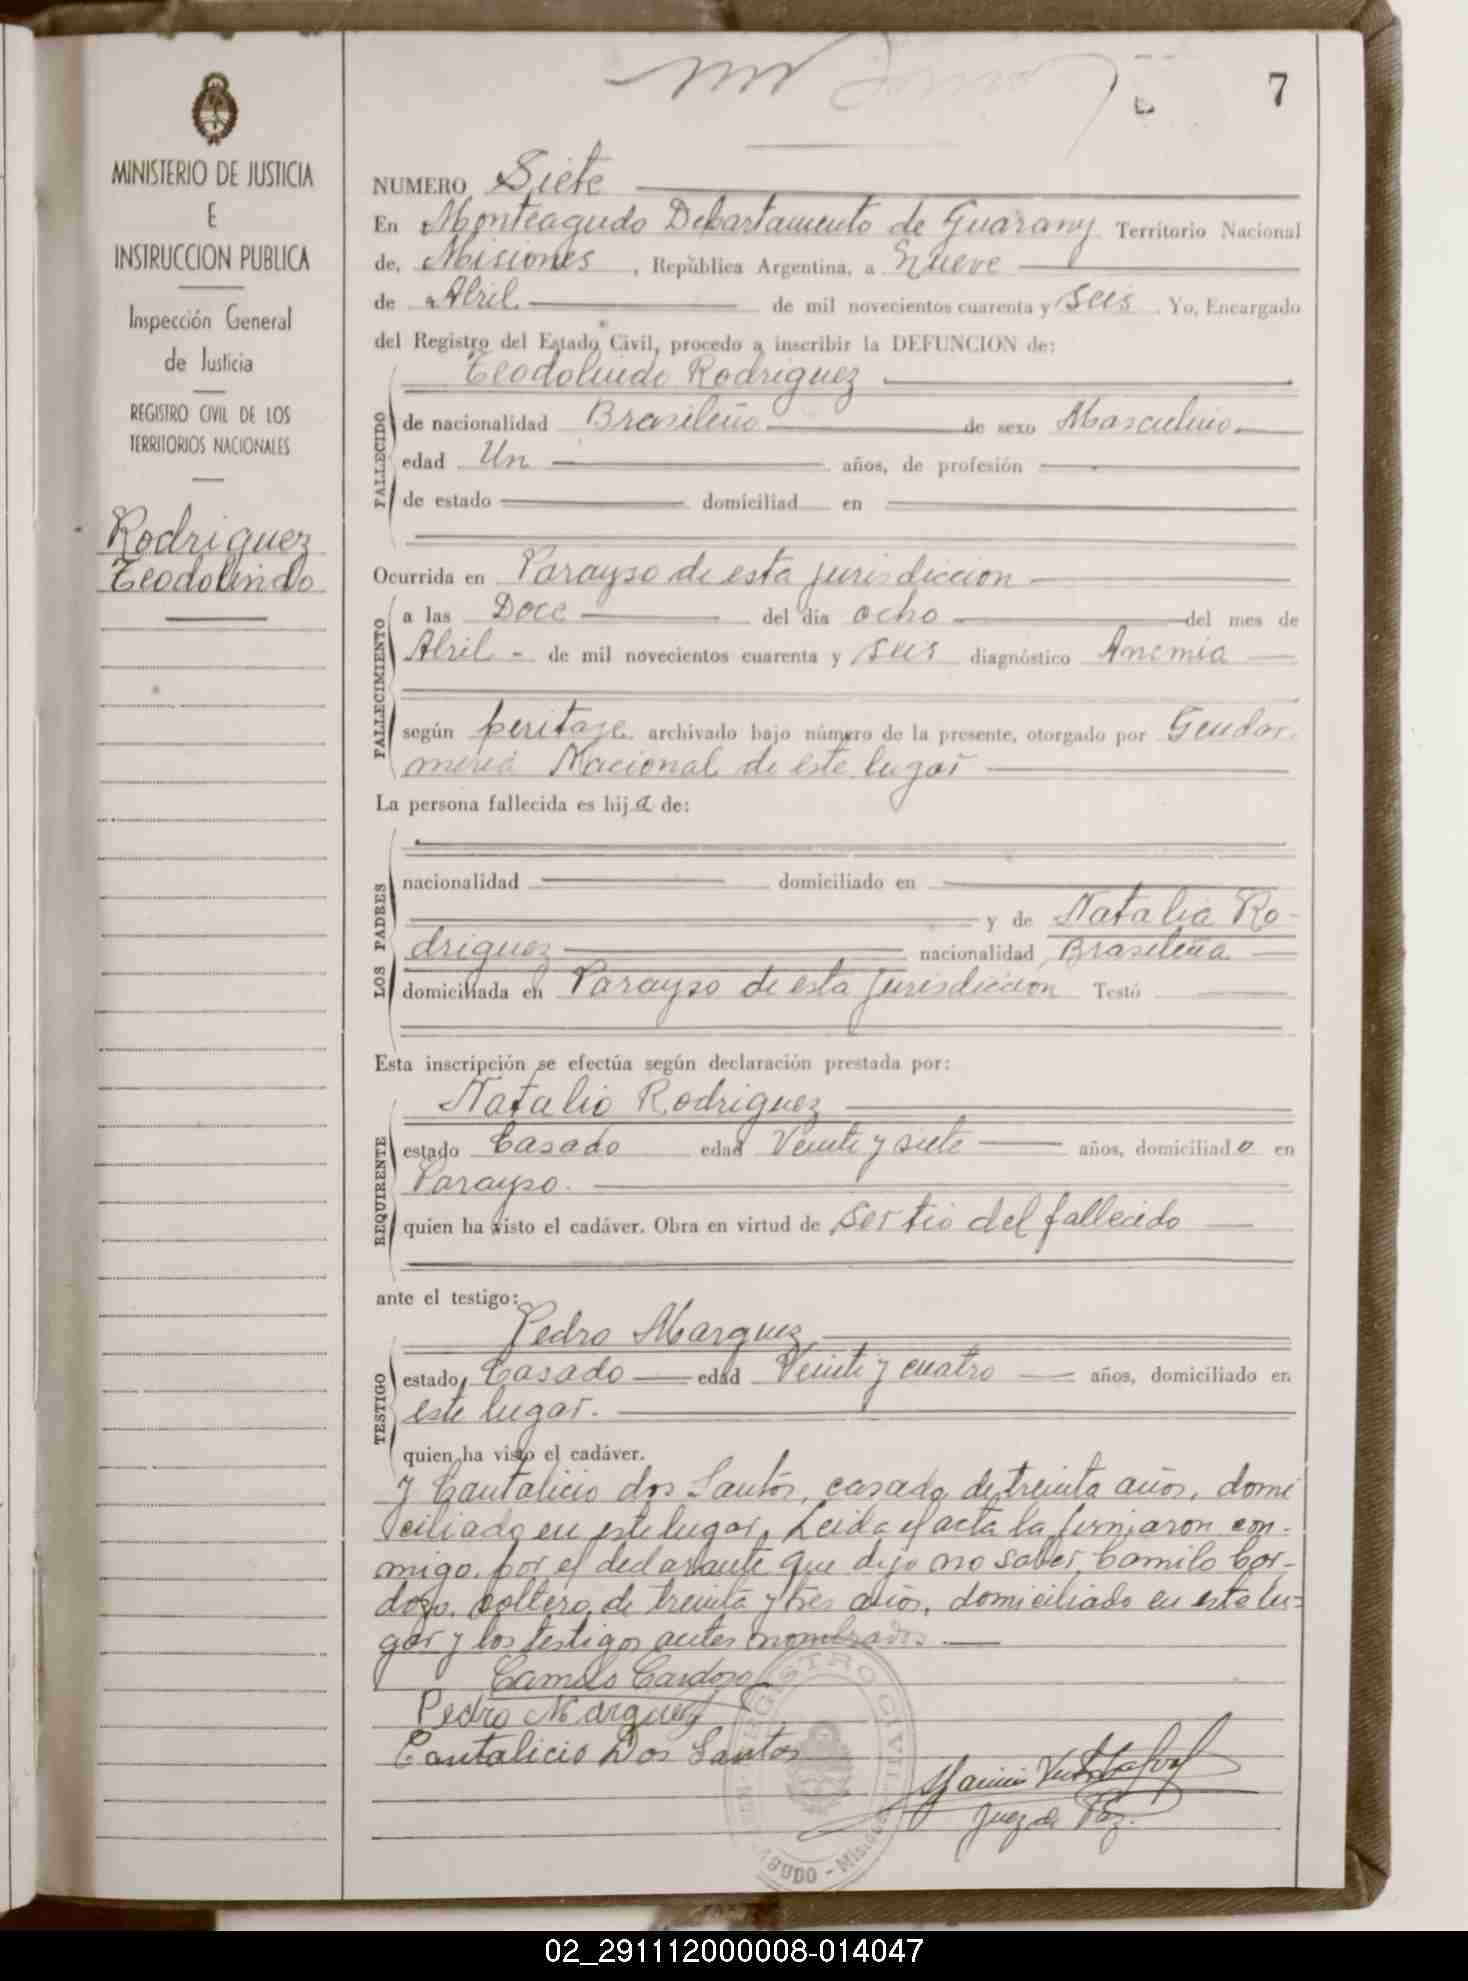 7
MINISTERIO DE JUSTICIA
E
INSTRUCCION PUBLICA
Inspección General
de Justicia
REGISTRO CIVIL DE LOS
TERRITORIOS NACIONALES
Rodriguez
Teodolindo
NUMERO Siete
En Monteagudo Departamento de Guarany Territorio Nacional
de, Misiones, República Argentina, a nueve
de Abril de mil novecientos cuarenta y seis. Yo, Encargado
del Registro del Estado Civil, procedo a inscribir la DEFUNCION de:
Teodolindo Rodriguez
FALLECIDO
de nacionalidad Brasileño de sexo Masculino
edad Un años, de profesión
de estado domiciliad en
Ocurrida en Parayso de esta jurisdiccion
FALLECIMIENTO
a las Doce del día ocho del mes de
Abril - de mil novecientos cuarenta y seis diagnóstico Anemia
según peritaje archivado bajo número de la presente, otorgado por Gendar-
meria Nacional de este lugar
La persona fallecida es hija de:
LOS PADRES
nacionalidad domiciliado en
y de Natalia Ro-
driguez nacionalidad Brasileña
domiciliada en Parayso de esta jurisdiccion Testó
Esta inscripción se efectúa según declaración prestada por:
Natalio Rodriguez
REQUIRENTE
estado Casado edad Veinte y siete años, domiciliado en
Parayso.
quien ha visto el cadáver. Obra en virtud de ser tio del fallecido
ante el testigo:
Pedro Marquez
TESTIGO
estado Casado edad Veinte y cuatro años, domiciliado en
este lugar.
quien ha visto el cadáver.
y Cantalicio dos Santos, casado, de treinta años, domi
ciliado en este lugar. Leida el acta la firmaron con-
migo, por el declarante que dijo no saber, Camilo Cor-
dozo, soltero, de treinta y tres años, domiciliado en este lu=
gar y los testigos antes nombrados.
Camilo Cardozo
Pedro Marquez
Cantalicio Dos Santos
Juez de Paz.
REGISTRO CIVIL
02_291112000008-014047